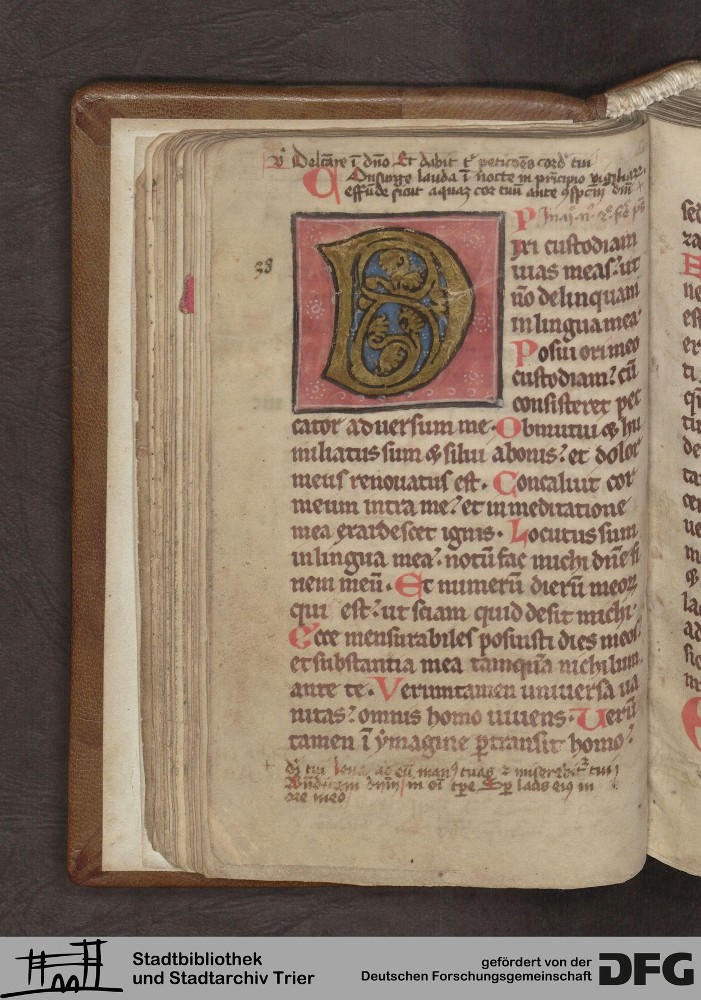 ℣ Delectare ī dño Et dabit t᷑ peticões cord tui
Consurge lauda ī nocte in prīcipio vigiliarꝝ
effūde sicut aquaz cor tuū ante ꝯspcm dñi +
38
D Ixi custodiam
uias meas: ut
nō delinquam
in lingua mea.
Posui ori meo
custodiam: cū
consisteret pec
cator aduersum me. Obmutui & hu
miliatus sum & silui a bonis: et dolor
meus renouatus est. Concaluit cor
meum intra me: et in meditatione
mea exardescet ignis. Locutus sum
in lingua mea: notū fac michi dñe fi
nem meū. Et numerū dierū meoꝝ
qui est: ut sciam quid desit michi.
Ecce mensurabiles posuisti dies meos:
et substantia mea tamquā nichilum
ante te. Verumtamen uniuersa ua
nitas: omnis homo uiuens. Uerū
tamen ī ymagine ꝑtransit homo:
+ ad eū manꝰ tuas tui
dñm in oī tꝑe Sꝑ laus eiꝰ in
ore meo
Stadtbibliothek
und Stadtarchiv Trier
gefördert von der
Deutschen Forschungsgemeinschaft
DFG